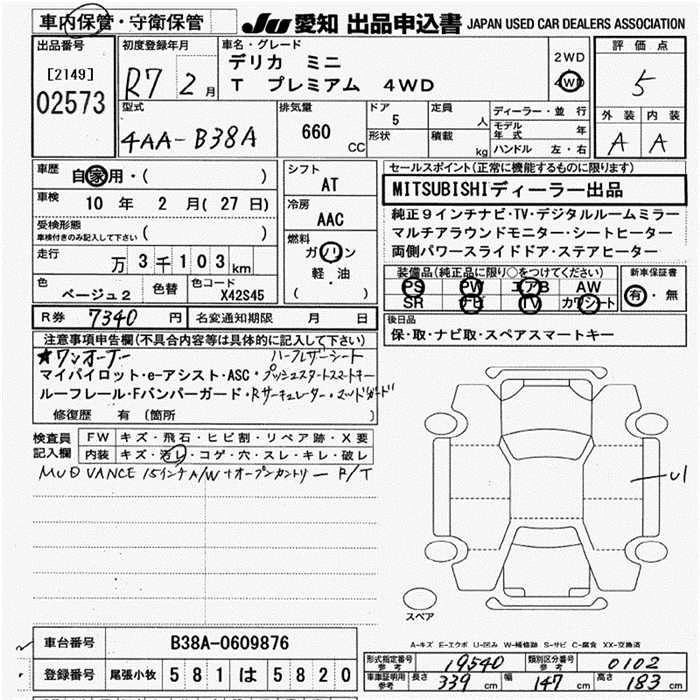 車内保管・守衛保管 JU 愛知 出品申込書 JAPAN USED CAR DEALERS ASSOCIATION
出品番号 初度登録年月 車名・グレード 評価点
[2149] R7 2月 デリカ ミニ 2WD
02573 T プレミアム 4WD 4WD 5
型式 排気量 ドア 定員 ディーラー・並行 外装 内装
4AA-B38A 660 CC 5 人 モデル年式 年 A A
形状 積載 kg ハンドル 左・右
車歴 自家用・( ) シフト AT セールスポイント(正常に機能するものに限ります)
車検 10年 2月(27日) 冷房 AAC MITSUBISHIディーラー出品
受検形態 車検付きのみ記入して下さい ( ) 純正9インチナビ・TV・デジタルルームミラー
燃料 マルチアラウンドモニター・シートヒーター
走行 万3千103km ガソリン 両側パワースライドドア・ステアヒーター
軽・油 装備品(純正品に限り○をつけてください) 新車保証書
色 ベージュ2 色替 色コード X42S45 ( ) PS PW エアB AW 有・無
SR ナビ TV カワシート
R券 7340円 名変通知期限 月 日 後日品
保・取・ナビ取・スペアスマートキー
注意事項申告欄(不具合内容等は具体的に記入して下さい)
★ワンオーナー ハーフレザーシート
マイパイロット・e-アシスト・ASC・プッシュスタートスマートキー
ルーフレール・Fバンパーガード・Rサーキュレーター・マッドガード
修復歴 有 (箇所 )
検査員記入欄 FW キズ・飛石・ヒビ割・リペア跡・X要
内装 キズ・汚レ・コゲ・穴・スレ・キレ・破レ
MUD VANCE 15インチA/W+オープンカントリー R/T
U1
スペア
A-キズ E-エクボ U-凹み W-補修跡 S-サビ C-腐食 XX-交換済
車台番号 B38A-0609876
形式指定番号 参考 19540 類別区分番号 参考 0102
登録番号 尾張小牧 581 は 5820
車庫証明用 参考 長さ 339cm 幅 147cm 高さ 183cm